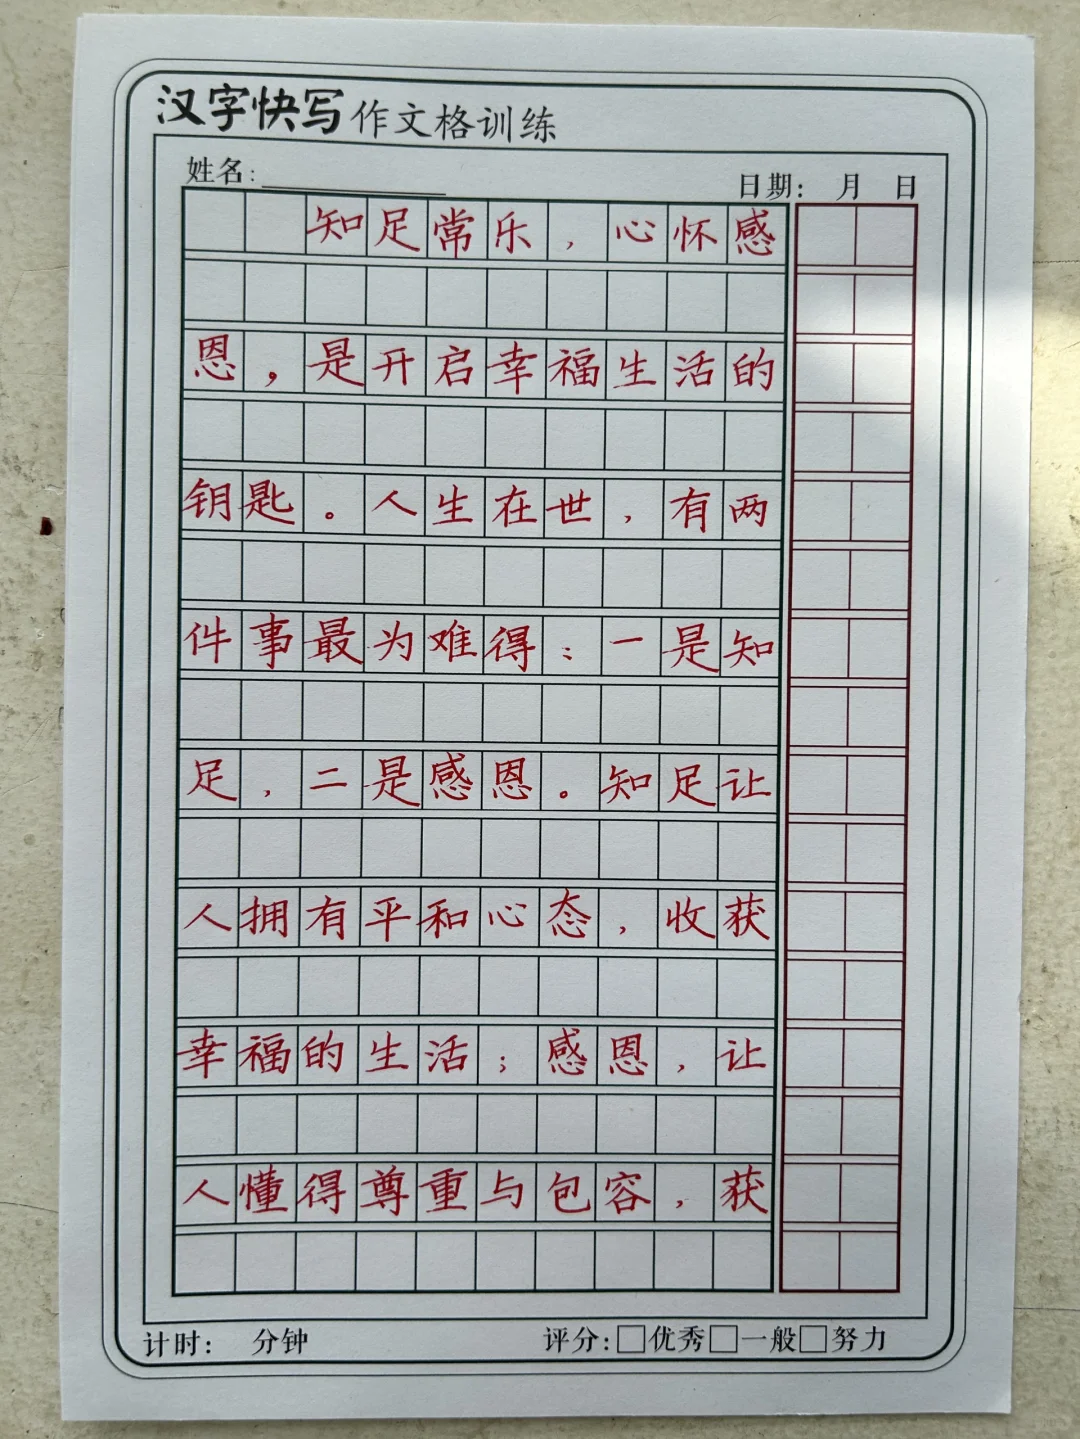 汉字快写作文格训练
姓名:
日期: 月 日
知足常乐,心怀感
恩,是开启幸福生活的
钥匙。人生在世,有两
件事最为难得:一是知
足,二是感恩。知足让
人拥有平和心态,收获
幸福的生活;感恩,让
人懂得尊重与包容,获
计时: 分钟
评分:□优秀□一般□努力